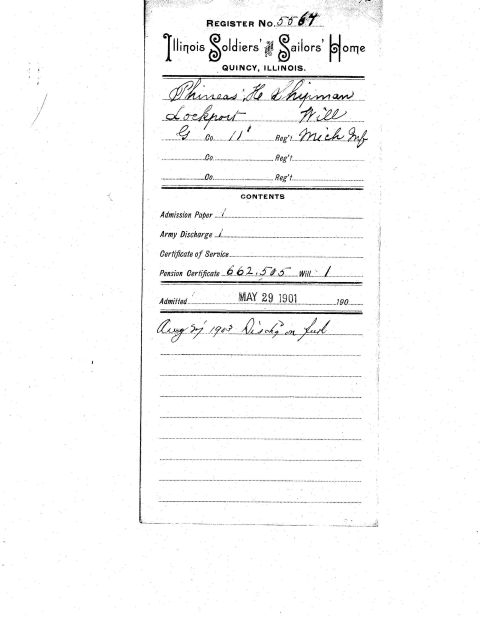 REGISTER No. 5564
Illinois Soldiers' and Sailors' Home
QUINCY, ILLINOIS.
Phineas H Shipman
Lockport Will
G Co. 11" Reg't. Mich Inf
Co. Reg't.
Co. Reg't.
CONTENTS
Admission Paper 1
Army Discharge 1
Certificate of Service
Pension Certificate 662.505 Will 1
Admitted MAY 29 1901 190
Aug 1903 Disch'g on furl